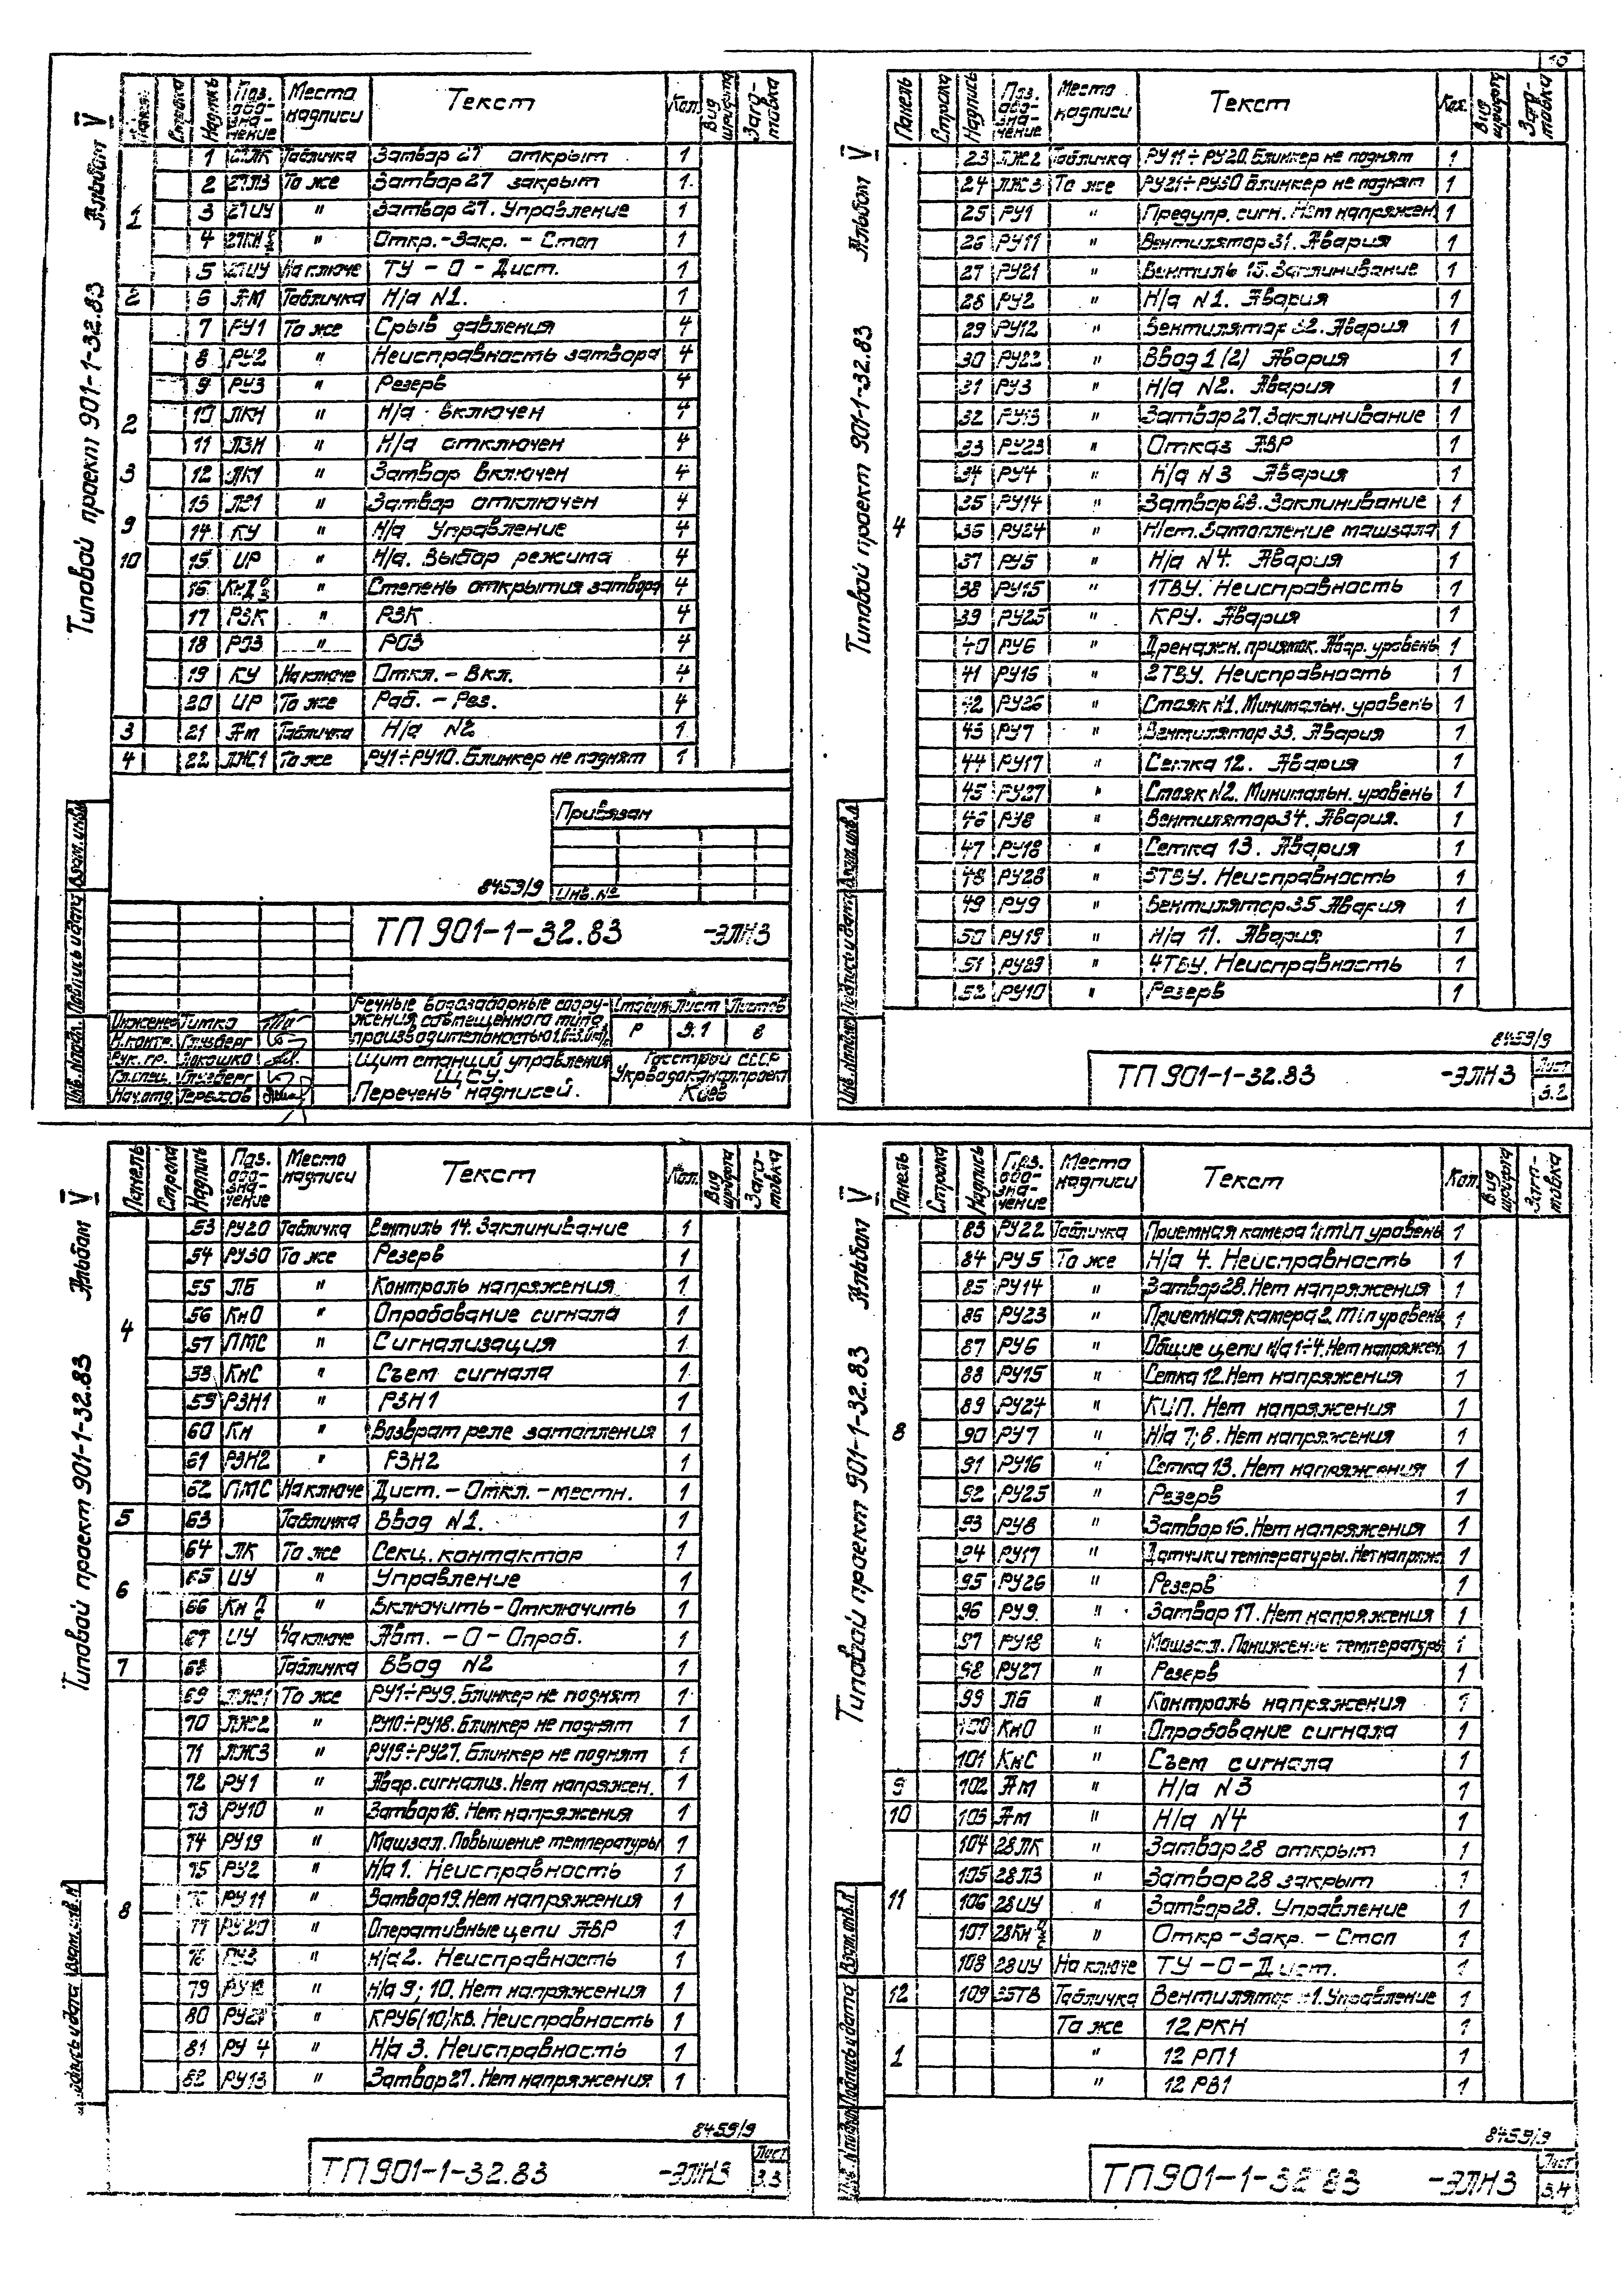 10
Альбом V
Типовой проект 901-1-32.83
Строка Надпись Поз. обозначение Место надписи Текст Кол. Вид шрифта Заготовка
1 1 27ЛК Табличка Затвор 27 открыт 1
2 27ЛЗ То же Затвор 27 закрыт 1
3 27ИУ " Затвор 27. Управление 1
4 27КН " Откр.-Закр. - Стоп 1
5 27ИУ На ключе ТУ - О - Дист. 1
2 6 Ам Табличка Н/а N1. 1
7 РУ1 То же Срыв давления 4
8 РУ2 " Неисправность затвора 4
9 РУ3 " Резерв 4
2 10 ЛКН " Н/а включен 4
11 ЛЗН " Н/а отключен 4
3 12 ЛК1 " Затвор включен 4
13 ЛЗ1 " Затвор отключен 4
9 14 КУ " Н/а Управление 4
10 15 ИР " Н/а. Выбор режима 4
16 " Степень открытия затвора 4
17 РЗК " РЗК 4
18 РОЗ " РОЗ 4
19 КУ На ключе Откл. - Вкл. 4
20 ИР То же Раб. - Рез. 4
3 21 Ам Табличка Н/а N2 1
4 22 ЛЖ1 То же РУ1÷РУ10. Блинкер не поднят 1
Привязан
Инв. №
8459/9
ТП 901-1-32.83 -ЭЛН3
Инженер Титко
Н.контр. Глузберг
Рук. гр.
Гл.спец. Глузберг
Нач.отд. Терехов
Речные водозаборные сооружения совмещенного типа производительностью
Стадия Лист Листов
Р 3.1 8
Щит станций управления ЩСУ. Перечень надписей.
Госстрой СССР Укрводоканалпроект Киев
Взам.инв.
Подпись и дата
Инв. N подл.
Альбом V
Типовой проект 901-1-32.83
Панель Строка Надпись Поз. обозначение Место надписи Текст Кол. Вид шрифта Заготовка
23 ЛЖ2 Табличка РУ11÷РУ20. Блинкер не поднят 1
24 ЛЖ3 То же РУ21÷РУ30 Блинкер не поднят 1
25 РУ1 " Предупр. сигн. Нет напряжен 1
26 РУ11 " Вентилятор 31. Авария 1
27 РУ21 " Вентиль 13. Заклинивание 1
28 РУ2 " Н/а N1. Авария 1
29 РУ12 " Вентилятор 32. Авария 1
30 РУ22 " Ввод 1 (2) Авария 1
31 РУ3 " Н/а N2. Авария 1
32 РУ13 " Затвор 27. Заклинивание 1
33 РУ23 " Отказ АВР 1
34 РУ4 " Н/а N3 Авария 1
35 РУ14 " Затвор 28. Заклинивание 1
4 36 РУ24 " Н/ст. Затопление машзала 1
37 РУ5 " Н/а N4. Авария 1
38 РУ15 " 1ТВУ. Неисправность 1
39 РУ25 " КРУ. Авария 1
40 РУ6 " Дренажн. приямок. Авар. уровень 1
41 РУ16 " 2ТВУ. Неисправность 1
42 РУ26 " Стояк N1. Минимальн. уровень 1
43 РУ7 " Вентилятор 33. Авария 1
44 РУ17 " Сетка 12. Авария 1
45 РУ27 " Стояк N2. Минимальн. уровень 1
46 РУ8 " Вентилятор 34. Авария. 1
47 РУ18 " Сетка 13. Авария 1
48 РУ28 " 3ТВУ. Неисправность 1
49 РУ9 " Вентилятор 35 Авария 1
50 РУ19 " Н/а 11. Авария 1
51 РУ29 " 4ТВУ. Неисправность 1
52 РУ10 " Резерв 1
8459/9
ТП 901-1-32.83 -ЭЛН3
Лист 3.2
Взам.инв.N
Подпись и дата
Инв. N подл.
Альбом V
Типовой проект 901-1-32.83
Панель Строка Надпись Поз. обозначение Место надписи Текст Кол. Вид шрифта Заготовка
53 РУ20 Табличка Вентиль 14. Заклинивание 1
54 РУ30 То же Резерв 1
55 ЛБ " Контроль напряжения 1
56 КнО " Опробование сигнала 1
4 57 ПМС " Сигнализация 1
58 КнС " Съем сигнала 1
59 РЗН1 " РЗН1 1
60 Кн " Возврат реле затопления 1
61 РЗН2 " РЗН2 1
62 ПМС На ключе Дист. - Откл. - местн. 1
5 63 Табличка Ввод N1. 1
64 ЛК То же Секц. контактор 1
6 65 ИУ " Управление 1
66 Кн " Включить-Отключить 1
67 ИУ На ключе Авт. - О - Опроб. 1
7 68 Табличка Ввод N2 1
69 ЛЖ1 То же РУ1÷РУ9. Блинкер не поднят 1
70 ЛЖ2 " РУ10÷РУ18. Блинкер не поднят 1
71 ЛЖ3 " РУ19÷РУ27. Блинкер не поднят 1
72 РУ1 " Авар. сигнализ. Нет напряжен. 1
73 РУ10 " Затвор 18. Нет напряжения 1
74 РУ19 " Машзал. Повышение температуры 1
75 РУ2 " Н/а 1. Неисправность 1
8 76 РУ11 " Затвор 19. Нет напряжения 1
77 РУ20 " Оперативные цепи АВР 1
78 РУ3 " Н/а 2. Неисправность 1
79 РУ12 " Н/а 9; 10. Нет напряжения 1
80 РУ21 " КРУ6(10)кв. Неисправность 1
81 РУ4 " Н/а 3. Неисправность 1
82 РУ13 " Затвор 27. Нет напряжения 1
8459/9
ТП 901-1-32.83 -ЭЛН3
Лист 3.3
Взам.инв.N
Подпись и дата
Альбом V
Типовой проект 901-1-32.83
Панель Строка Надпись Поз. обозначение Место надписи Текст Кол. Вид шрифта Заготовка
83 РУ22 Табличка Приемная камера 1. min уровень 1
84 РУ5 То же Н/а 4. Неисправность 1
85 РУ14 " Затвор 28. Нет напряжения 1
86 РУ23 " Приемная камера 2. min уровень 1
87 РУ6 " Общие цепи н/а 1÷4. Нет напряжен 1
88 РУ15 " Сетка 12. Нет напряжения 1
89 РУ24 " КИП. Нет напряжения 1
8 90 РУ7 " Н/а 7; 8. Нет напряжения 1
91 РУ16 " Сетка 13. Нет напряжения 1
92 РУ25 " Резерв 1
93 РУ8 " Затвор 16. Нет напряжения 1
94 РУ17 " Датчики температуры. Нет напряж. 1
95 РУ26 " Резерв 1
96 РУ9. " Затвор 17. Нет напряжения 1
97 РУ18 " Машзал. Понижение температуры 1
98 РУ27 " Резерв 1
99 ЛБ " Контроль напряжения 1
100 КнО " Опробование сигнала 1
101 КнС " Съем сигнала 1
9 102 Ам " Н/а N3 1
10 103 Ам " Н/а N4 1
104 28ЛК " Затвор 28 открыт 1
105 28ЛЗ " Затвор 28 закрыт 1
11 106 28ИУ " Затвор 28. Управление 1
107 28Кн " Откр - Закр. - Стоп 1
108 28ИУ На ключе ТУ - О - Дист. 1
12 109 35ТВ Табличка Вентилятор Управление 1
То же 12РКН 1
1 " 12РП1 1
" 12РВ1 1
8459/9
ТП 901-1-32.83 -ЭЛН3
Лист 3.4
Взам.инв.N
Подпись и дата